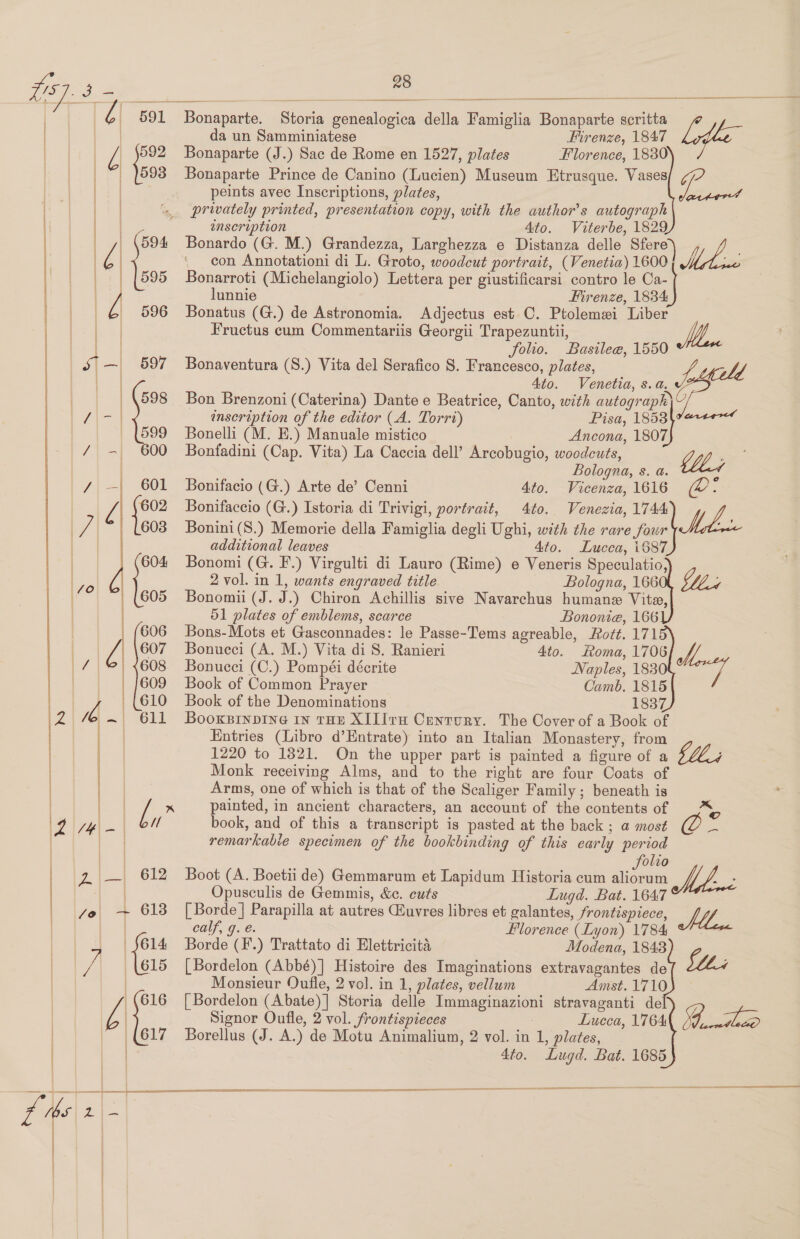 28
£157. 3 –
6 591 Bonaparte. Storia genealogica della Famiglia Bonaparte scritta
da un Samminiatese Firenze, 1847
6 592 Bonaparte (J.) Sac de Rome en 1527, plates Florence, 1830
593 Bonaparte Prince de Canino (Lucien) Museum Etrusque. Vases
peints avec Inscriptions, plates,
privately printed, presentation copy, with the author's autograph
inscription 4to. Viterbe, 1829
6 594 Bonardo (G. M.) Grandezza, Larghezza e Distanza delle Sfere
con Annotationi di L. Groto, woodcut portrait, (Venetia) 1600 Molini
595 Bonarroti (Michelangiolo) Lettera per giustificarsi contro le Ca-
lunnie Firenze, 1834
6 596 Bonatus (G.) de Astronomia. Adjectus est C. Ptolemæi Liber
Fructus cum Commentariis Georgii Trapezuntii,
folio. Basileæ, 1550 Allen
5 – 597 Bonaventura (S.) Vita del Serafico S. Francesco, plates,
4to. Venetia, s.a.
598 Bon Brenzoni (Caterina) Dante e Beatrice, Canto, with autograph
1 – inscription of the editor (A. Torri) Pisa, 1853
599 Bonelli (M. E.) Manuale mistico Ancona, 1807
1 – 600 Bonfadini (Cap. Vita) La Caccia dell' Arcobugio, woodcuts,
Bologna, s. a. Ellis
1 – 601 Bonifacio (G.) Arte de' Cenni 4to. Vicenza, 1616
602 Bonifaccio (G.) Istoria di Trivigi, portrait, 4to. Venezia, 1744
7 6 603 Bonini (S.) Memorie della Famiglia degli Ughi, with the rare four Molini
additional leaves 4to. Lucca, 1687
604 Bonomi (G. F.) Virgulti di Lauro (Rime) e Veneris Speculatio,
10 6 2 vol. in 1, wants engraved title Bologna, 1660 Ellis
605 Bonomii (J. J.) Chiron Achillis sive Navarchus humanæ Vitæ,
51 plates of emblems, scarce Bononiæ, 1661
606 Bons-Mots et Gasconnades: le Passe-Tems agreable, Rott. 1715
607 Bonucci (A. M.) Vita di S. Ranieri 4to. Roma, 1706
1 6 608 Bonucci (C.) Pompéi décrite Naples, 1830 Money
609 Book of Common Prayer Camb. 1815
610 Book of the Denominations 1837
2 16 – 611 Bookbinding in the XIIIth Century. The Cover of a Book of
Entries (Libro d'Entrate) into an Italian Monastery, from
1220 to 1321. On the upper part is painted a figure of a Ellis
Monk receiving Alms, and to the right are four Coats of
Arms, one of which is that of the Scaliger Family; beneath is
painted, in ancient characters, an account of the contents of
2 14 – book, and of this a transcript is pasted at the back; a most
remarkable specimen of the bookbinding of this early period
folio
2 – 612 Boot (A. Boetii de) Gemmarum et Lapidum Historia cum aliorum
Opusculis de Gemmis, &c. cuts Lugd. Bat. 1647 Molini
10 – 613 [Borde] Parapilla at autres Œuvres libres et galantes, frontispiece,
calf, g. e. Florence (Lyon) 1784 Allen
7 614 Borde (F.) Trattato di Elettricità Modena, 1843
615 [Bordelon (Abbé)] Histoire des Imaginations extravagantes de Ellis
Monsieur Oufle, 2 vol. in 1, plates, vellum Amst. 1710
616 [Bordelon (Abate)] Storia delle Immaginazioni stravaganti del
6 Signor Oufle, 2 vol. frontispieces Lucca, 1764
617 Borellus (J. A.) de Motu Animalium, 2 vol. in 1, plates,
4to. Lugd. Bat. 1685
£ 165 2 –